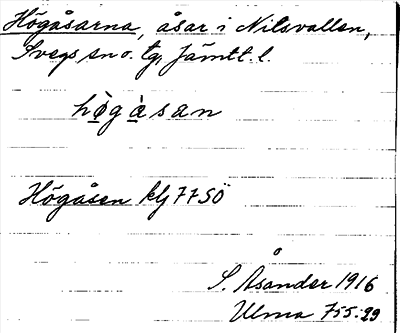 Högåsarna, åsar i Nilsvallen,
Svegs sn o. tg, Jämtl. l.
hö̀gà̊san
Högåsen klj 77SÖ
S. Åsander 1916
Ulma 755:29